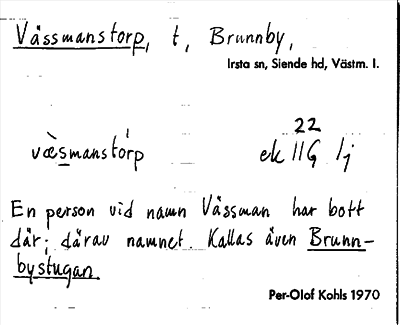 Vässmanstorp, t, Brunnby,
Irsta sn, Siende hd, Västm. l.
22
væ̀smanstórp ek 11G 1j
En person vid namn Vässman har bott
där; därav namnet. Kallas även Brunn-
bystugan.
Per-Olof Kohls 1970